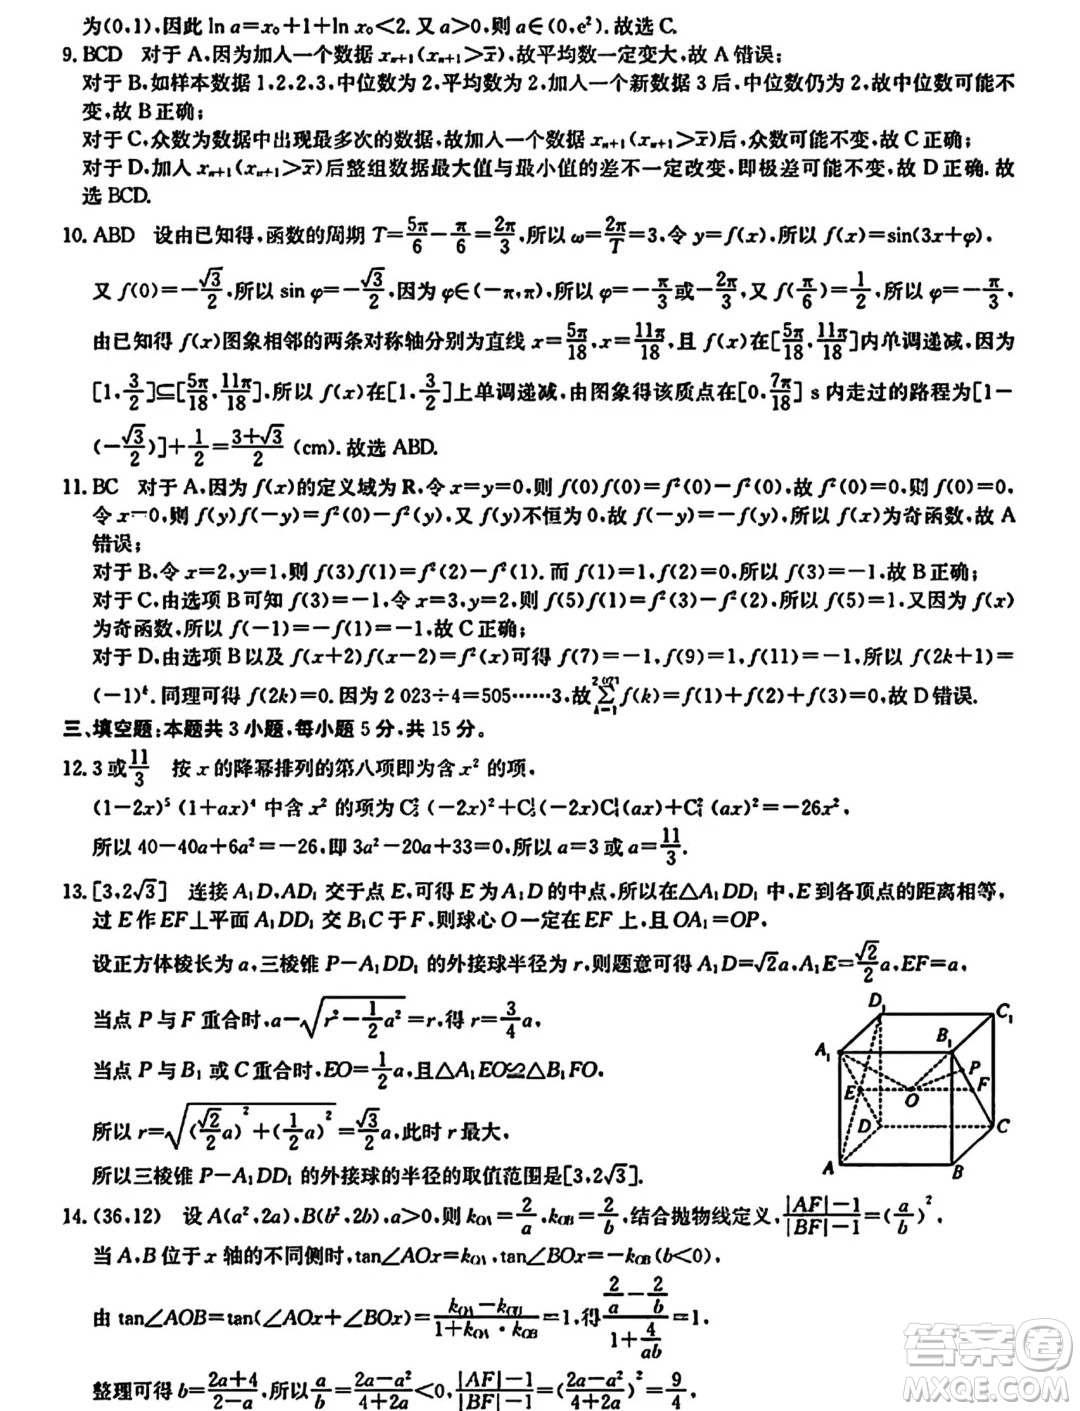 为(0,1),因此 ln a=x₀+1+ln x₀<2. 又 a>0,则 a∈(0,e²).故选 C.
9. BCD 对于 A,因为加入一个数据 xₙ₊₁(xₙ₊₁>x̄),故平均数一定变大,故 A 错误;
对于 B,如样本数据 1,2,2,3,中位数为 2,平均数为 2,加入一个新数据 3 后,中位数仍为 2,故中位数可能不
变,故 B 正确;
对于 C,众数为数据中出现最多次的数据,故加入一个数据 xₙ₊₁(xₙ₊₁>x̄)后,众数可能不变,故 C 正确;
对于 D,加入 xₙ₊₁(xₙ₊₁>x̄)后整组数据最大值与最小值的差不一定改变,即极差可能不变,故 D 正确.故
选 BCD.
10. ABD 设由已知得,函数的周期 T=5π/6−π/6=2π/3,所以 ω=2π/T=3,令 y=f(x),所以 f(x)=sin(3x+φ),
又 f(0)=−√3/2,所以 sin φ=−√3/2,因为 φ∈(−π,π),所以 φ=−π/3或−2π/3,又 f(π/6)=1/2,所以 φ=−π/3,
由已知得 f(x)图象相邻的两条对称轴分别为直线 x=5π/18,x=11π/18,且 f(x)在[5π/18,11π/18]内单调递减,
[1,3/2]⊆[5π/18,11π/18],所以 f(x)在[1,3/2]上单调递减,由图象得该质点在[0,7π/18] s 内走过的路程为[1−
(−√3/2)]+1/2=(3+√3)/2 (cm).故选 ABD.
11. BC 对于 A,因为 f(x)的定义域为 R,令 x=y=0,则 f(0)f(0)=f²(0)−f²(0),故 f²(0)=0,则 f(0)=0,
令 x=0,则 f(y)f(−y)=f²(0)−f²(y),又 f(y)不恒为 0,故 f(−y)=−f(y),所以 f(x)为奇函数,故 A
错误;
对于 B,令 x=2,y=1,则 f(3)f(1)=f²(2)−f²(1).而 f(1)=1,f(2)=0,所以 f(3)=−1,故 B 正确;
对于 C,由选项 B 可知 f(3)=−1,令 x=3,y=2,则 f(5)f(1)=f²(3)−f²(2),所以 f(5)=1,又因为 f(x)
为奇函数,所以 f(−1)=−f(1)=−1,故 C 正确;
对于 D,由选项 B 以及 f(x+2)f(x−2)=f²(x)−f²(2)可得 f(7)=−1,f(9)=1,f(11)=−1,所以 f(2k+1)=
(−1)ᵏ.同理可得 f(2k)=0.因为 2 023÷4=505……3,故∑f(k)=f(1)+f(2)+f(3)=0,故 D 错误.
三、填空题:本题共 3 小题,每小题 5 分,共 15 分。
12. 3 或11/3 按 x 的降幂排列的第八项即为含 x² 的项,
(1−2x)⁵(1+ax)⁴ 中含 x² 的项为 C₅²(−2x)²+C₅¹(−2x)C₄¹(ax)+C₄²(ax)²=−26x²,
所以 40−40a+6a²=−26,即 3a²−20a+33=0,所以 a=3 或 a=11/3.
13. [3,2√3] 连接 A₁D,AD₁ 交于点 E,可得 E 为 A₁D 的中点,所以在△A₁DD₁ 中,E 到各顶点的距离相等,
过 E 作 EF⊥平面 A₁DD₁ 交 B₁C 于 F,则球心 O 一定在 EF 上,且 OA₁=OP,
设正方体棱长为 a,三棱锥 P−A₁DD₁ 的外接球半径为 r,则题意可得 A₁D=√2a,A₁E=(√2/2)a,EF=a,
当点 P 与 F 重合时,a−√(r²−(1/2)a²)=r,得 r=(3/4)a,
当点 P 与 B₁ 或 C 重合时,EO=(1/2)a,且△A₁EO≌△B₁FO,
所以 r=√(((√2/2)a)²+((1/2)a)²)=(√3/2)a,此时 r 最大,
所以三棱锥 P−A₁DD₁ 的外接球的半径的取值范围是[3,2√3].
D₁ C₁ A₁ B₁ P E O F D C A B
14. (36,12) 设 A(a²,2a),B(b²,2b),a>0,则 k_OA=2/a,k_OB=2/b,结合抛物线定义,(|AF|−1)/(|BF|−1)=(a/b)²,
当 A,B 位于 x 轴的不同侧时,tan∠AOx=k_OA,tan∠BOx=−k_OB(b<0),
由 tan∠AOB=tan(∠AOx+∠BOx)=(k_OA−k_OB)/(1+k_OA·k_OB)=1,得(2/a−2/b)/(1+4/ab)=1,
整理可得 b=(2a+4)/(2−a),所以 a/b=(2a−a²)/(4+2a)<0,(|AF|−1)/(|BF|−1)=((2a−a²)/(4+2a))²=9/4,
答案卷
MXQE.COM